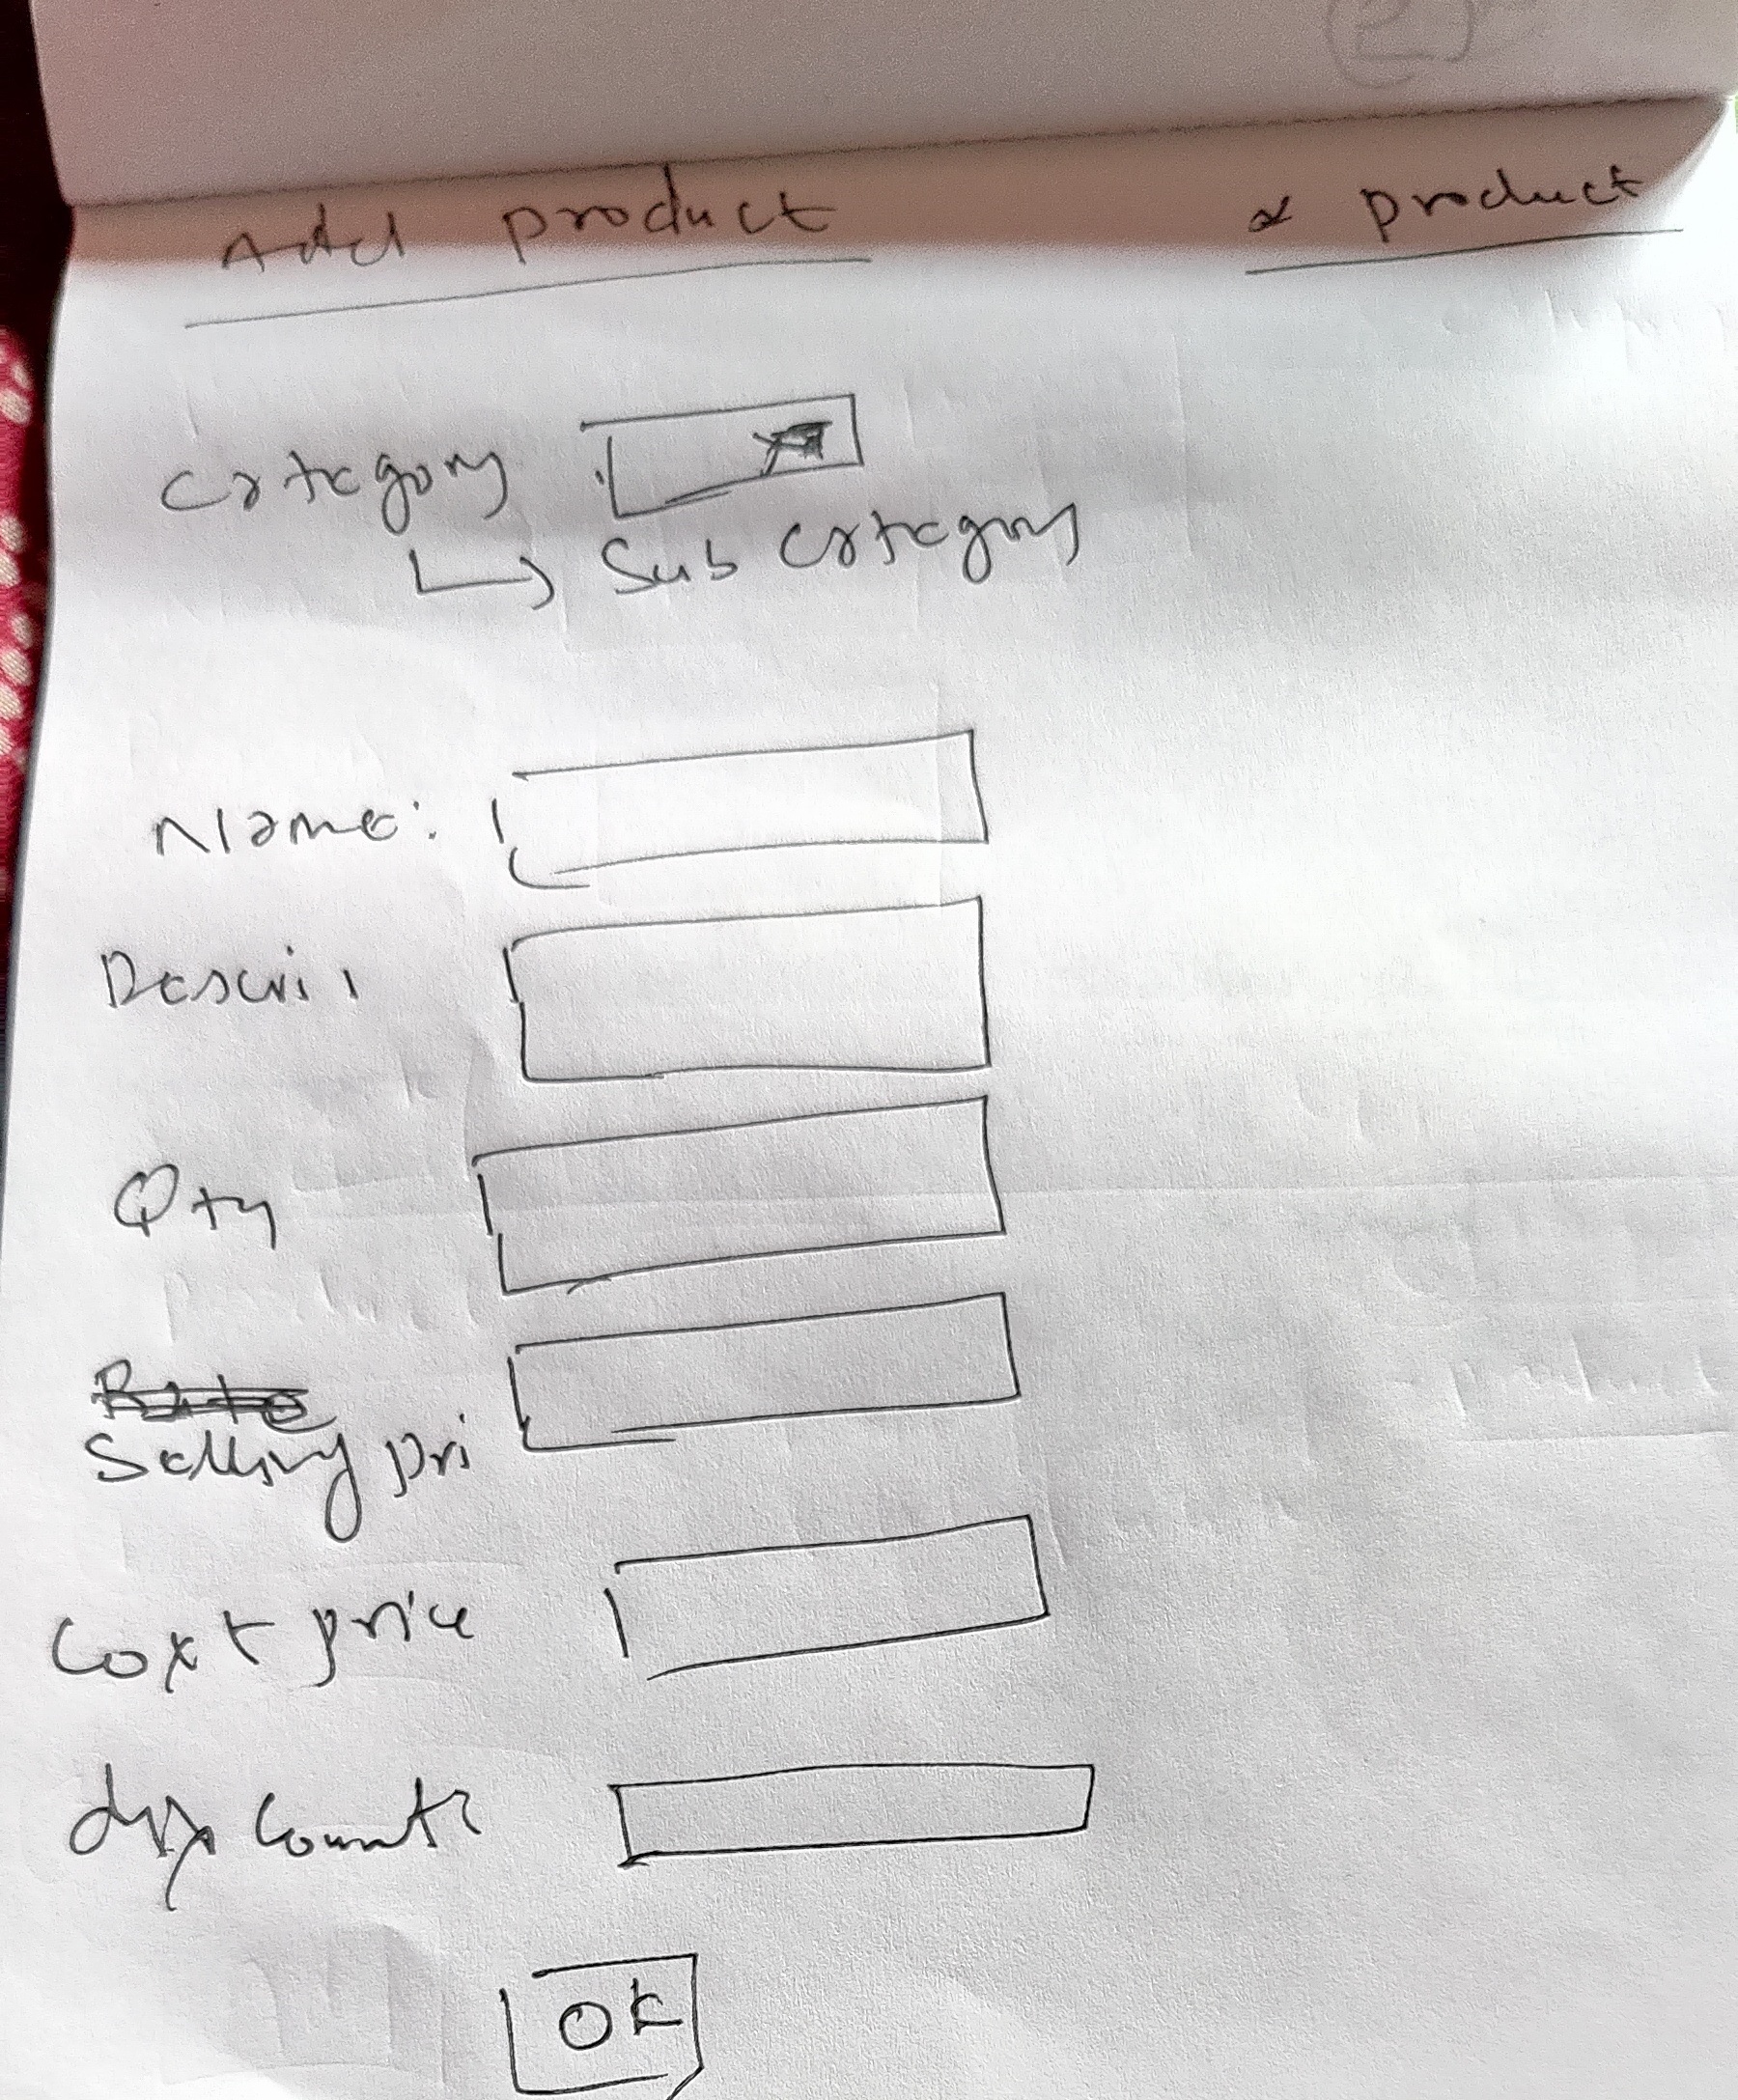 Add product
product
Category
Sub Category
Name:
Descri
Qty
Selling pri
Cost price
discount
OK